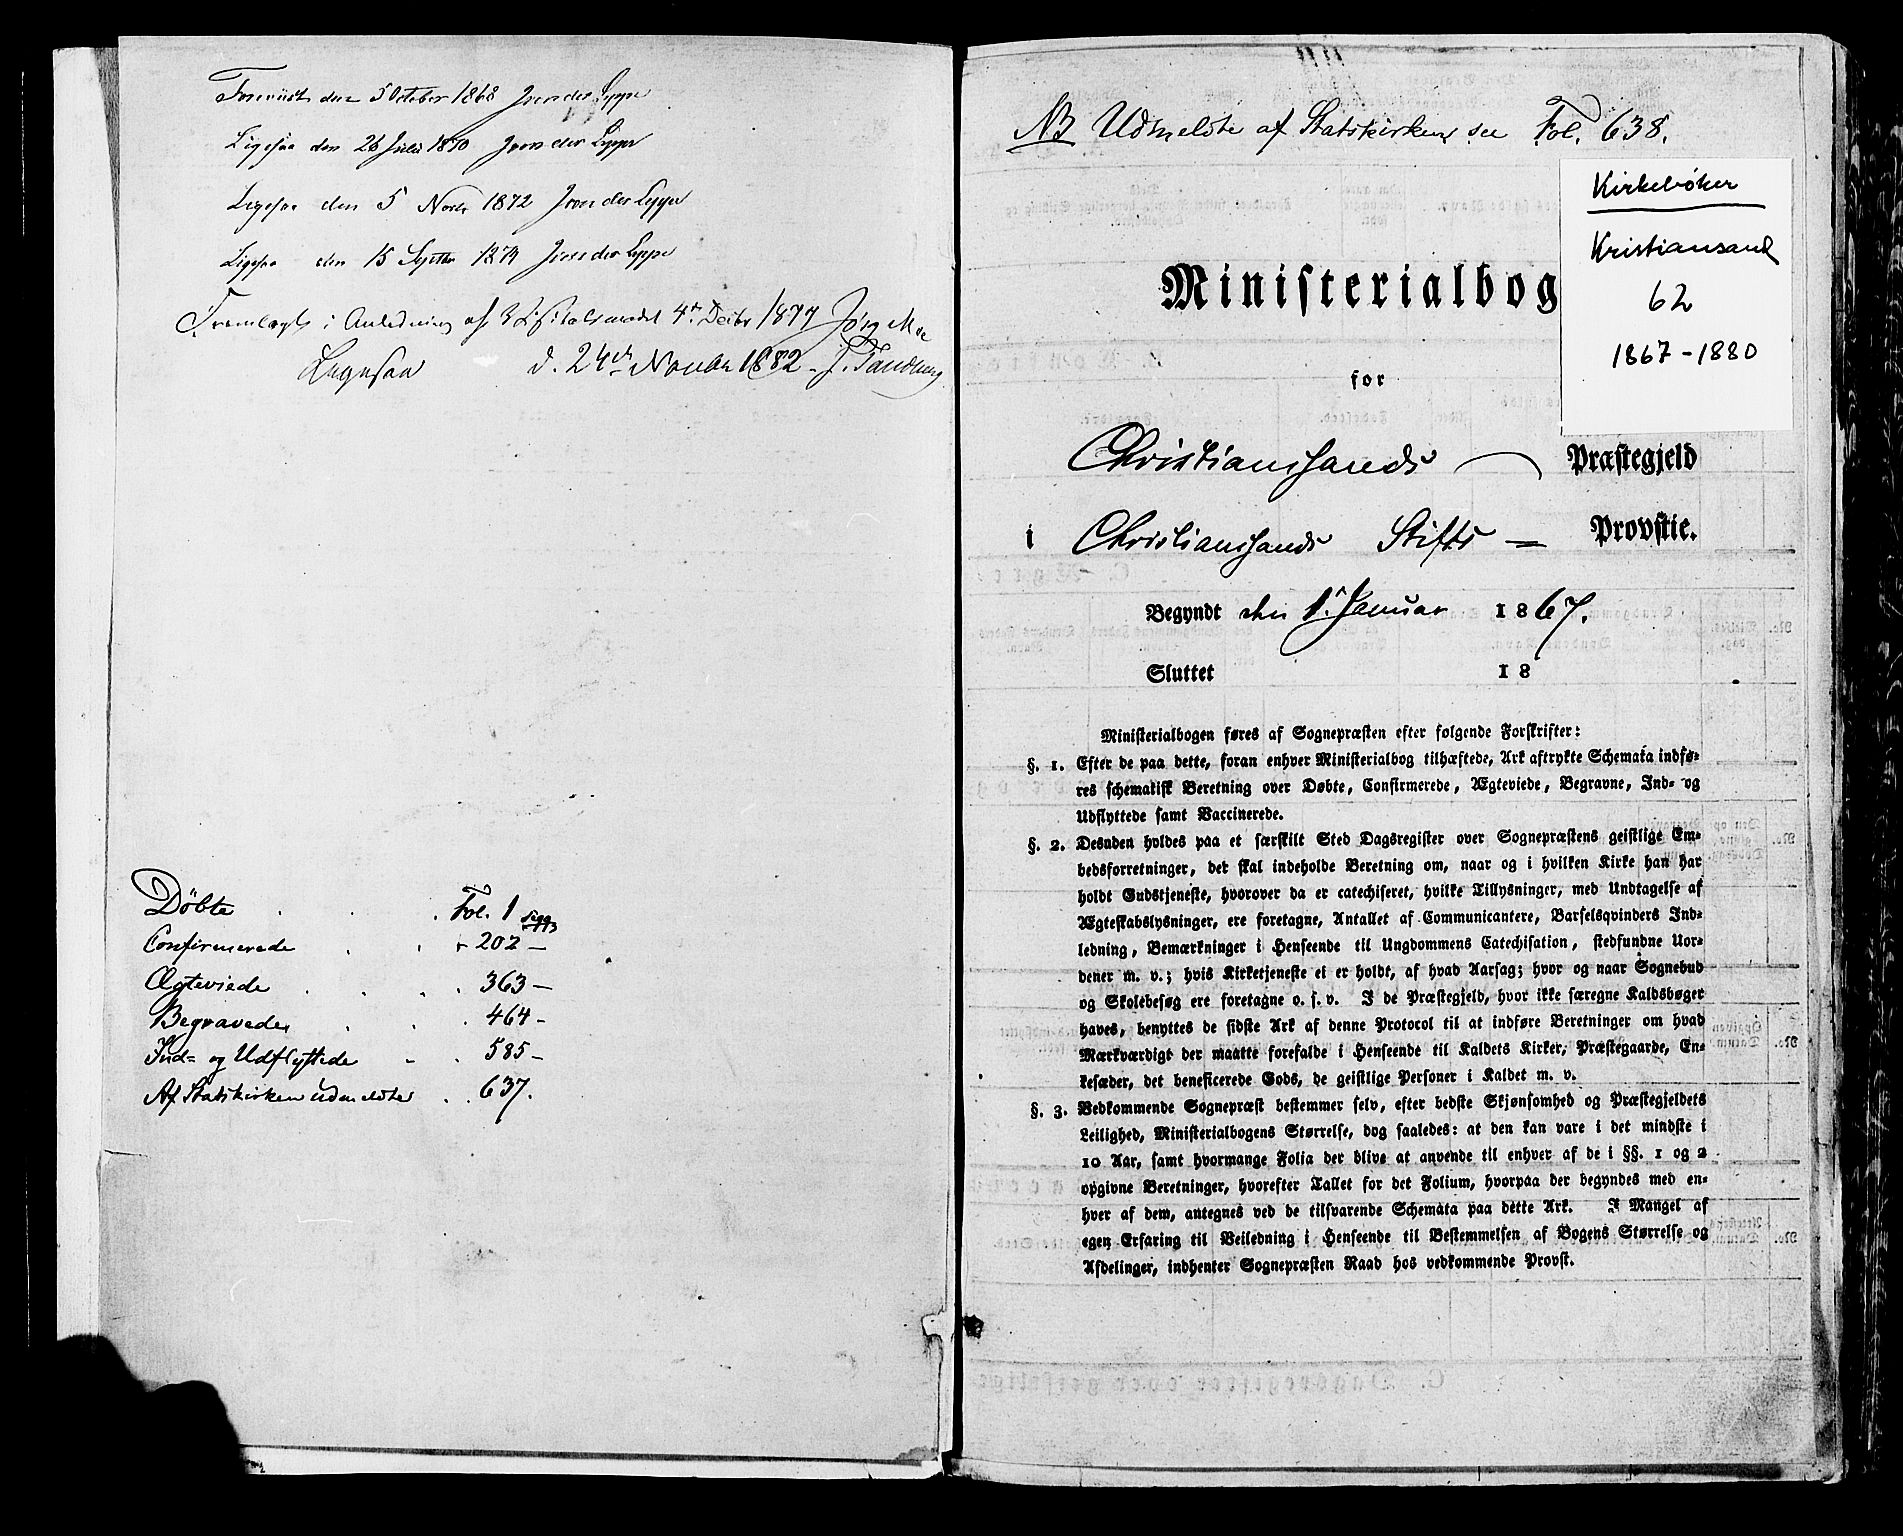 Foreviist den 5 October 1868 J von der Lippe
Ligesaa den 26 Juli 1870 J von der Lippe
Ligesaa den 5 Novbr 1872 J von der Lippe
Ligesaa den 15 Septbr 1874 J von der Lippe
Fremlagt i Anledning af Visitatsmødet 4de Decbr 1877 Jørg Moe
Ligesaa d. 24de Novbr 1882 J. Tandberg
Døbte . . . Fol. 1 sqq
Confirmerede . . " 202 —
Ægteviede . . . . 363 —
Begravede . . . 464 –
Ind- og Udflyttede . . 585 –
Af Statskirken udmeldte . . 637.
NB Udmeldte af Statskirken see Fol. 638.
Kirkebøker
Kristiansand
62
1867-1880
Ministerialbog
for
Christianssands Præstegjeld
i Christianssands Stifts Provstie.
Begyndt den 1. Januar 1867.
Sluttet 18
Ministerialbogen føres af Sognepræsten efter følgende Forskrifter:
§. 1. Efter de paa dette, foran enhver Ministerialbog tilhæftede, Ark aftrykte Schemata indfø-
res schematisk Beretning over Døbte, Confirmerede, Ægteviede, Begravne, Ind- og
Udflyttede samt Vaccinerede.
§. 2. Desuden holdes paa et særskilt Sted Dagsregister over Sognepræstens geistlige Em-
bedsforretninger, det skal indeholde Beretning om, naar og i hvilken Kirke han har
holdt Gudstjeneste, hvorover da er catechiseret, hvilke Tillysninger, med Undtagelse af
Ægteskabslysninger, ere foretagne, Antallet af Communicantere, Barselqvinders Ind-
ledning, Bemærkninger i Henseende til Ungdommens Catechisation, stedfundne Uor-
dener m. v.; hvis Kirketjeneste ei er holdt, af hvad Aarsag; hvor og naar Sognebud
og Skolebesøg ere foretagne o. s. v. I de Præstegjeld, hvor ikke særegne Kaldsbøger
haves, benyttes de sidste Ark af denne Protocol til at indføre Beretninger om hvad
Mærkværdigt der maatte forefalde i Henseende til Kaldets Kirker, Præstegaarde, En-
kesæder, det beneficerede Gods, de geistlige Personer i Kaldet m. v.
§. 3. Vedkommende Sognepræst bestemmer selv, efter bedste Skjønsomhed og Præstegjeldets
Leilighed, Ministerialbogens Størrelse, dog saaledes: at den kan vare i det mindste i
10 Aar, samt hvormange Folia der blive at anvende til enhver af de i §§. 1 og 2
opgivne Beretninger, hvorefter Tallet for det Folium, hvorpaa der begyndes med en-
hver af dem, antegnes ved de tilsvarende Schemata paa dette Ark. I Mangel af
egen Erfaring til Veiledning i Henseende til Bestemmelsen af Bogens Størrelse og
Afdelinger, indhenter Sognepræsten Raad hos vedkommende Provst.